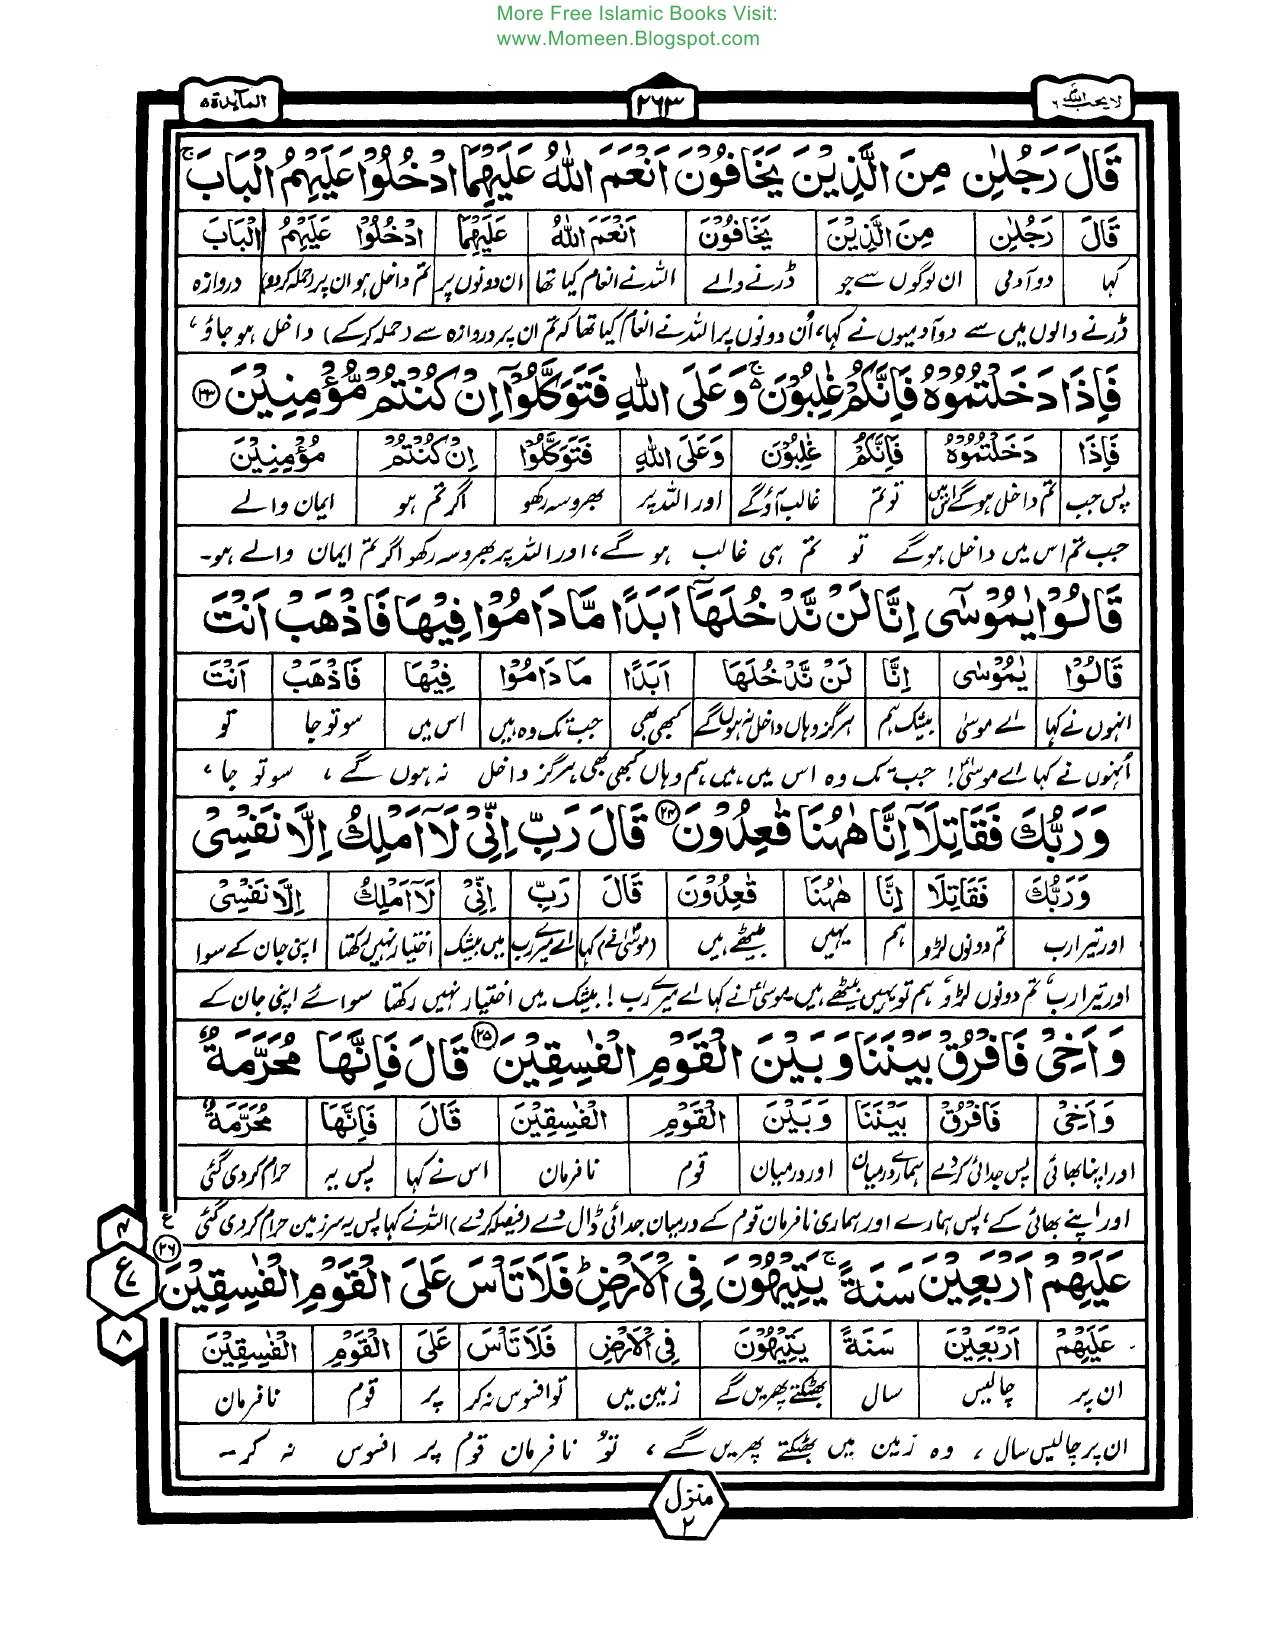 More Free Islamic Books Visit:
www.Momeen.Blogspot.com
لا یحب اللہ ٦
٢٦٣
المآئدة ٥
قَالَ رَجُلٰنِ مِنَ الَّذِيْنَ يَخَافُوْنَ اَنْعَمَ اللّٰهُ عَلَيْهِمَا ادْخُلُوْا عَلَيْهِمُ الْبَابَ ۚ
قَالَ رَجُلٰنِ مِنَ الَّذِيْنَ يَخَافُوْنَ اَنْعَمَ اللّٰهُ عَلَيْهِمَا ادْخُلُوْا عَلَيْهِمُ الْبَابَ
کہا دو آدمی ان لوگوں سے جو ڈرنے والے اللہ نے انعام کیا تھا ان دونوں پر تم داخل ہو ان پر (حملہ کردو) دروازہ
ڈرنے والوں میں سے دو آدمیوں نے کہا، اُن دونوں پر اللہ نے انعام کیا تھا کہ تم ان پر دروازہ سے (حملہ کرکے) داخل ہو جاؤ،
فَاِذَا دَخَلْتُمُوْهُ فَاِنَّكُمْ غٰلِبُوْنَ ۚ۬ وَعَلَى اللّٰهِ فَتَوَكَّلُوْٓا اِنْ كُنْتُمْ مُّؤْمِنِيْنَ ٢٣
فَاِذَا دَخَلْتُمُوْهُ فَاِنَّكُمْ غٰلِبُوْنَ وَعَلَى اللّٰهِ فَتَوَكَّلُوْا اِنْ كُنْتُمْ مُؤْمِنِيْنَ
پس جب تم داخل ہو گے اس میں تو تم غالب آؤ گے اور اللہ پر بھروسہ رکھو اگر تم ہو ایمان والے
جب تم اس میں داخل ہو گے تو تم ہی غالب ہو گے، اور اللہ پر بھروسہ رکھو اگر تم ایمان والے ہو۔
قَالُوْا يٰمُوْسٰٓى اِنَّا لَنْ نَّدْخُلَهَآ اَبَدًا مَّا دَامُوْا فِيْهَا فَاذْهَبْ اَنْتَ
قَالُوْا يٰمُوْسٰى اِنَّا لَنْ نَّدْخُلَهَا اَبَدًا مَا دَامُوْا فِيْهَا فَاذْهَبْ اَنْتَ
انہوں نے کہا اے موسیٰ بیشک ہم ہرگز وہاں داخل نہ ہوں گے کبھی بھی جب تک وہ ہیں اس میں سو تو جا تو
اُنہوں نے کہا اے موسیٰؑ! جب تک وہ اس میں ہیں ہم وہاں کبھی بھی ہرگز داخل نہ ہوں گے، سو تو جا،
وَرَبُّكَ فَقَاتِلَآ اِنَّا هٰهُنَا قٰعِدُوْنَ ٢٤ قَالَ رَبِّ اِنِّىْ لَآ اَمْلِكُ اِلَّا نَفْسِىْ
وَرَبُّكَ فَقَاتِلَا اِنَّا هٰهُنَا قٰعِدُوْنَ قَالَ رَبِّ اِنِّىْ لَآ اَمْلِكُ اِلَّا نَفْسِىْ
اور تیرا رب تم دونوں لڑو ہم یہیں بیٹھے ہیں (موسیٰؑ نے) کہا اے میرے رب میں بیشک اختیار نہیں رکھتا اپنی جان کے سوا
اور تیرا رب، تم دونوں لڑو، ہم تو یہیں بیٹھے ہیں۔ موسیٰؑ نے کہا اے میرے رب! بیشک میں اختیار نہیں رکھتا سوائے اپنی جان کے
وَاَخِىْ فَافْرُقْ بَيْنَنَا وَبَيْنَ الْقَوْمِ الْفٰسِقِيْنَ ٢٥ قَالَ فَاِنَّهَا مُحَرَّمَةٌ
وَاَخِىْ فَافْرُقْ بَيْنَنَا وَبَيْنَ الْقَوْمِ الْفٰسِقِيْنَ قَالَ فَاِنَّهَا مُحَرَّمَةٌ
اور اپنا بھائی پس جدائی کردے ہمارے درمیان اور درمیان قوم نافرمان اس نے کہا پس یہ حرام کردی گئی
اور اپنے بھائی کے، پس ہمارے اور ہماری نافرمان قوم کے درمیان جدائی ڈال دے (فیصلہ کردے) اللہ نے کہا پس یہ سرزمین حرام کردی گئی
عَلَيْهِمْ اَرْبَعِيْنَ سَنَةً ۚ يَتِيْهُوْنَ فِى الْاَرْضِ ؕ فَلَا تَاْسَ عَلَى الْقَوْمِ الْفٰسِقِيْنَ ٢٦ ع
٤
ع
٨
عَلَيْهِمْ اَرْبَعِيْنَ سَنَةً يَتِيْهُوْنَ فِى الْاَرْضِ فَلَا تَاْسَ عَلَى الْقَوْمِ الْفٰسِقِيْنَ
ان پر چالیس سال بھٹکتے پھریں گے زمین میں تو افسوس نہ کر پر قوم نافرمان
ان پر چالیس سال، وہ زمین میں بھٹکتے پھریں گے، تو نافرمان قوم پر افسوس نہ کر۔
منزل
٢